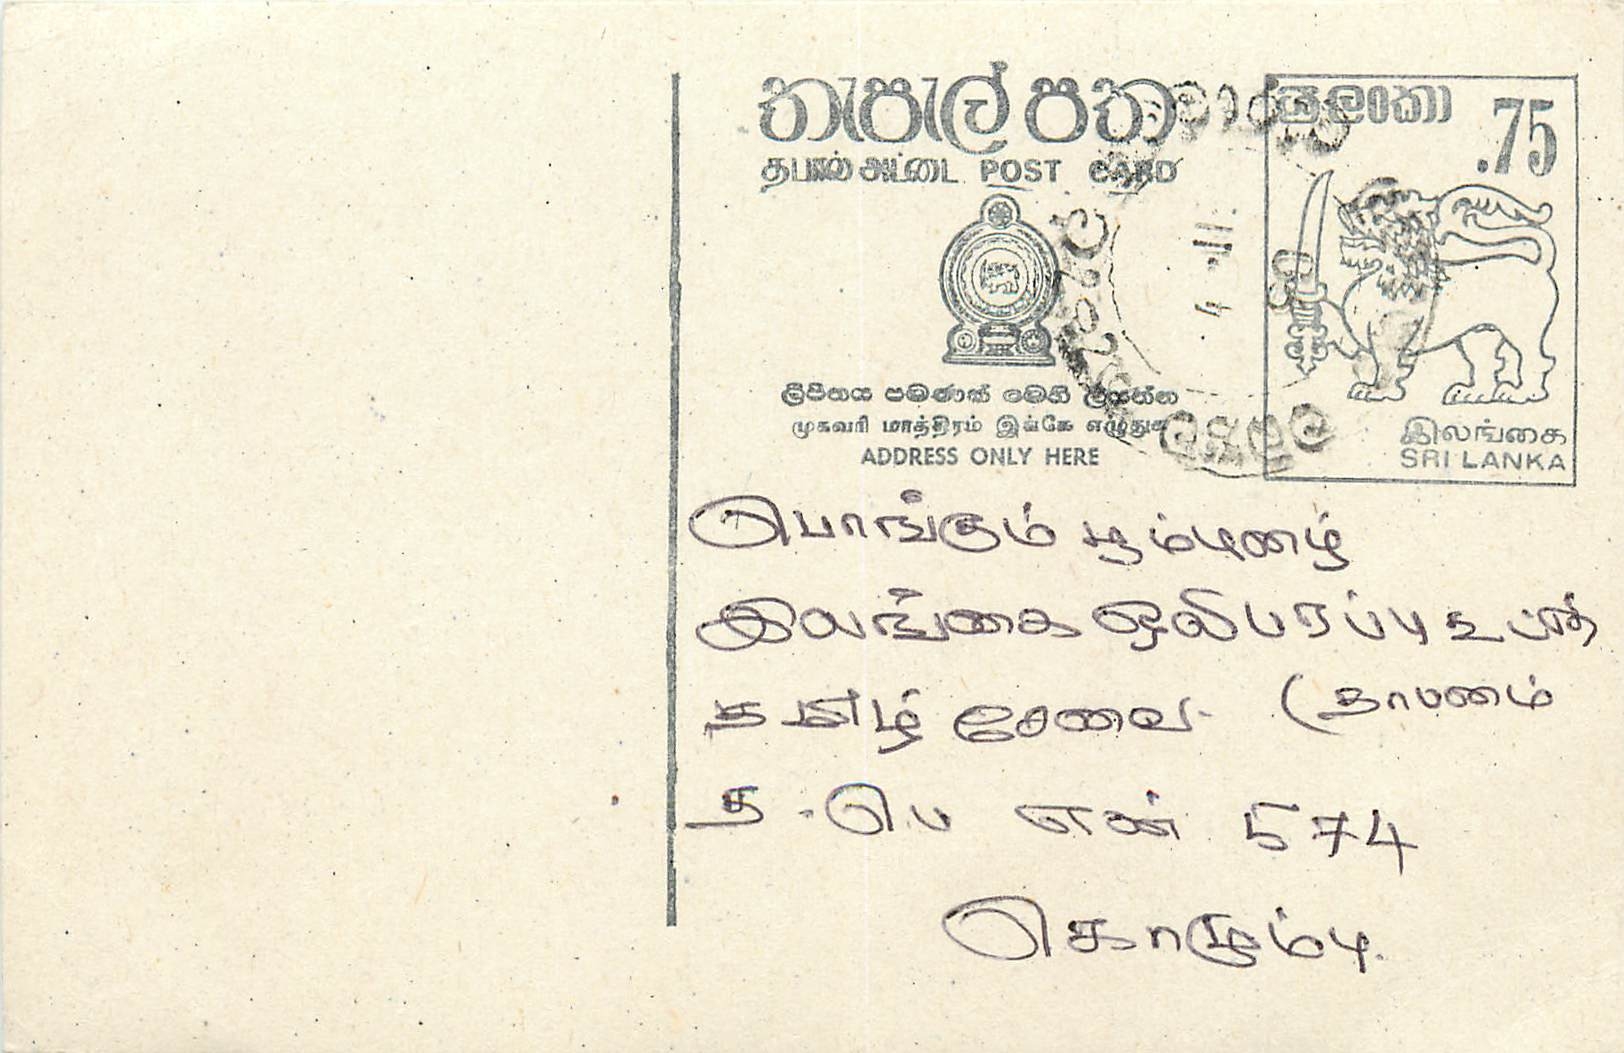 තැපැල් පත
தபால் அட்டை POST CARD
ශ්‍රී ලංකා .75
ලිපිනය පමණක් මෙහි ලියන්න
முகவரி மாத்திரம் இங்கே எழுதுக
ADDRESS ONLY HERE
இலங்கை
SRI LANKA
4 - 11
பொங்கும் பூம்புனழ்
இலங்கை ஒலிபரப்பு
தமிழ் சேவை (தாபனம்
த . பெ எண் 574
கொழும்பு.